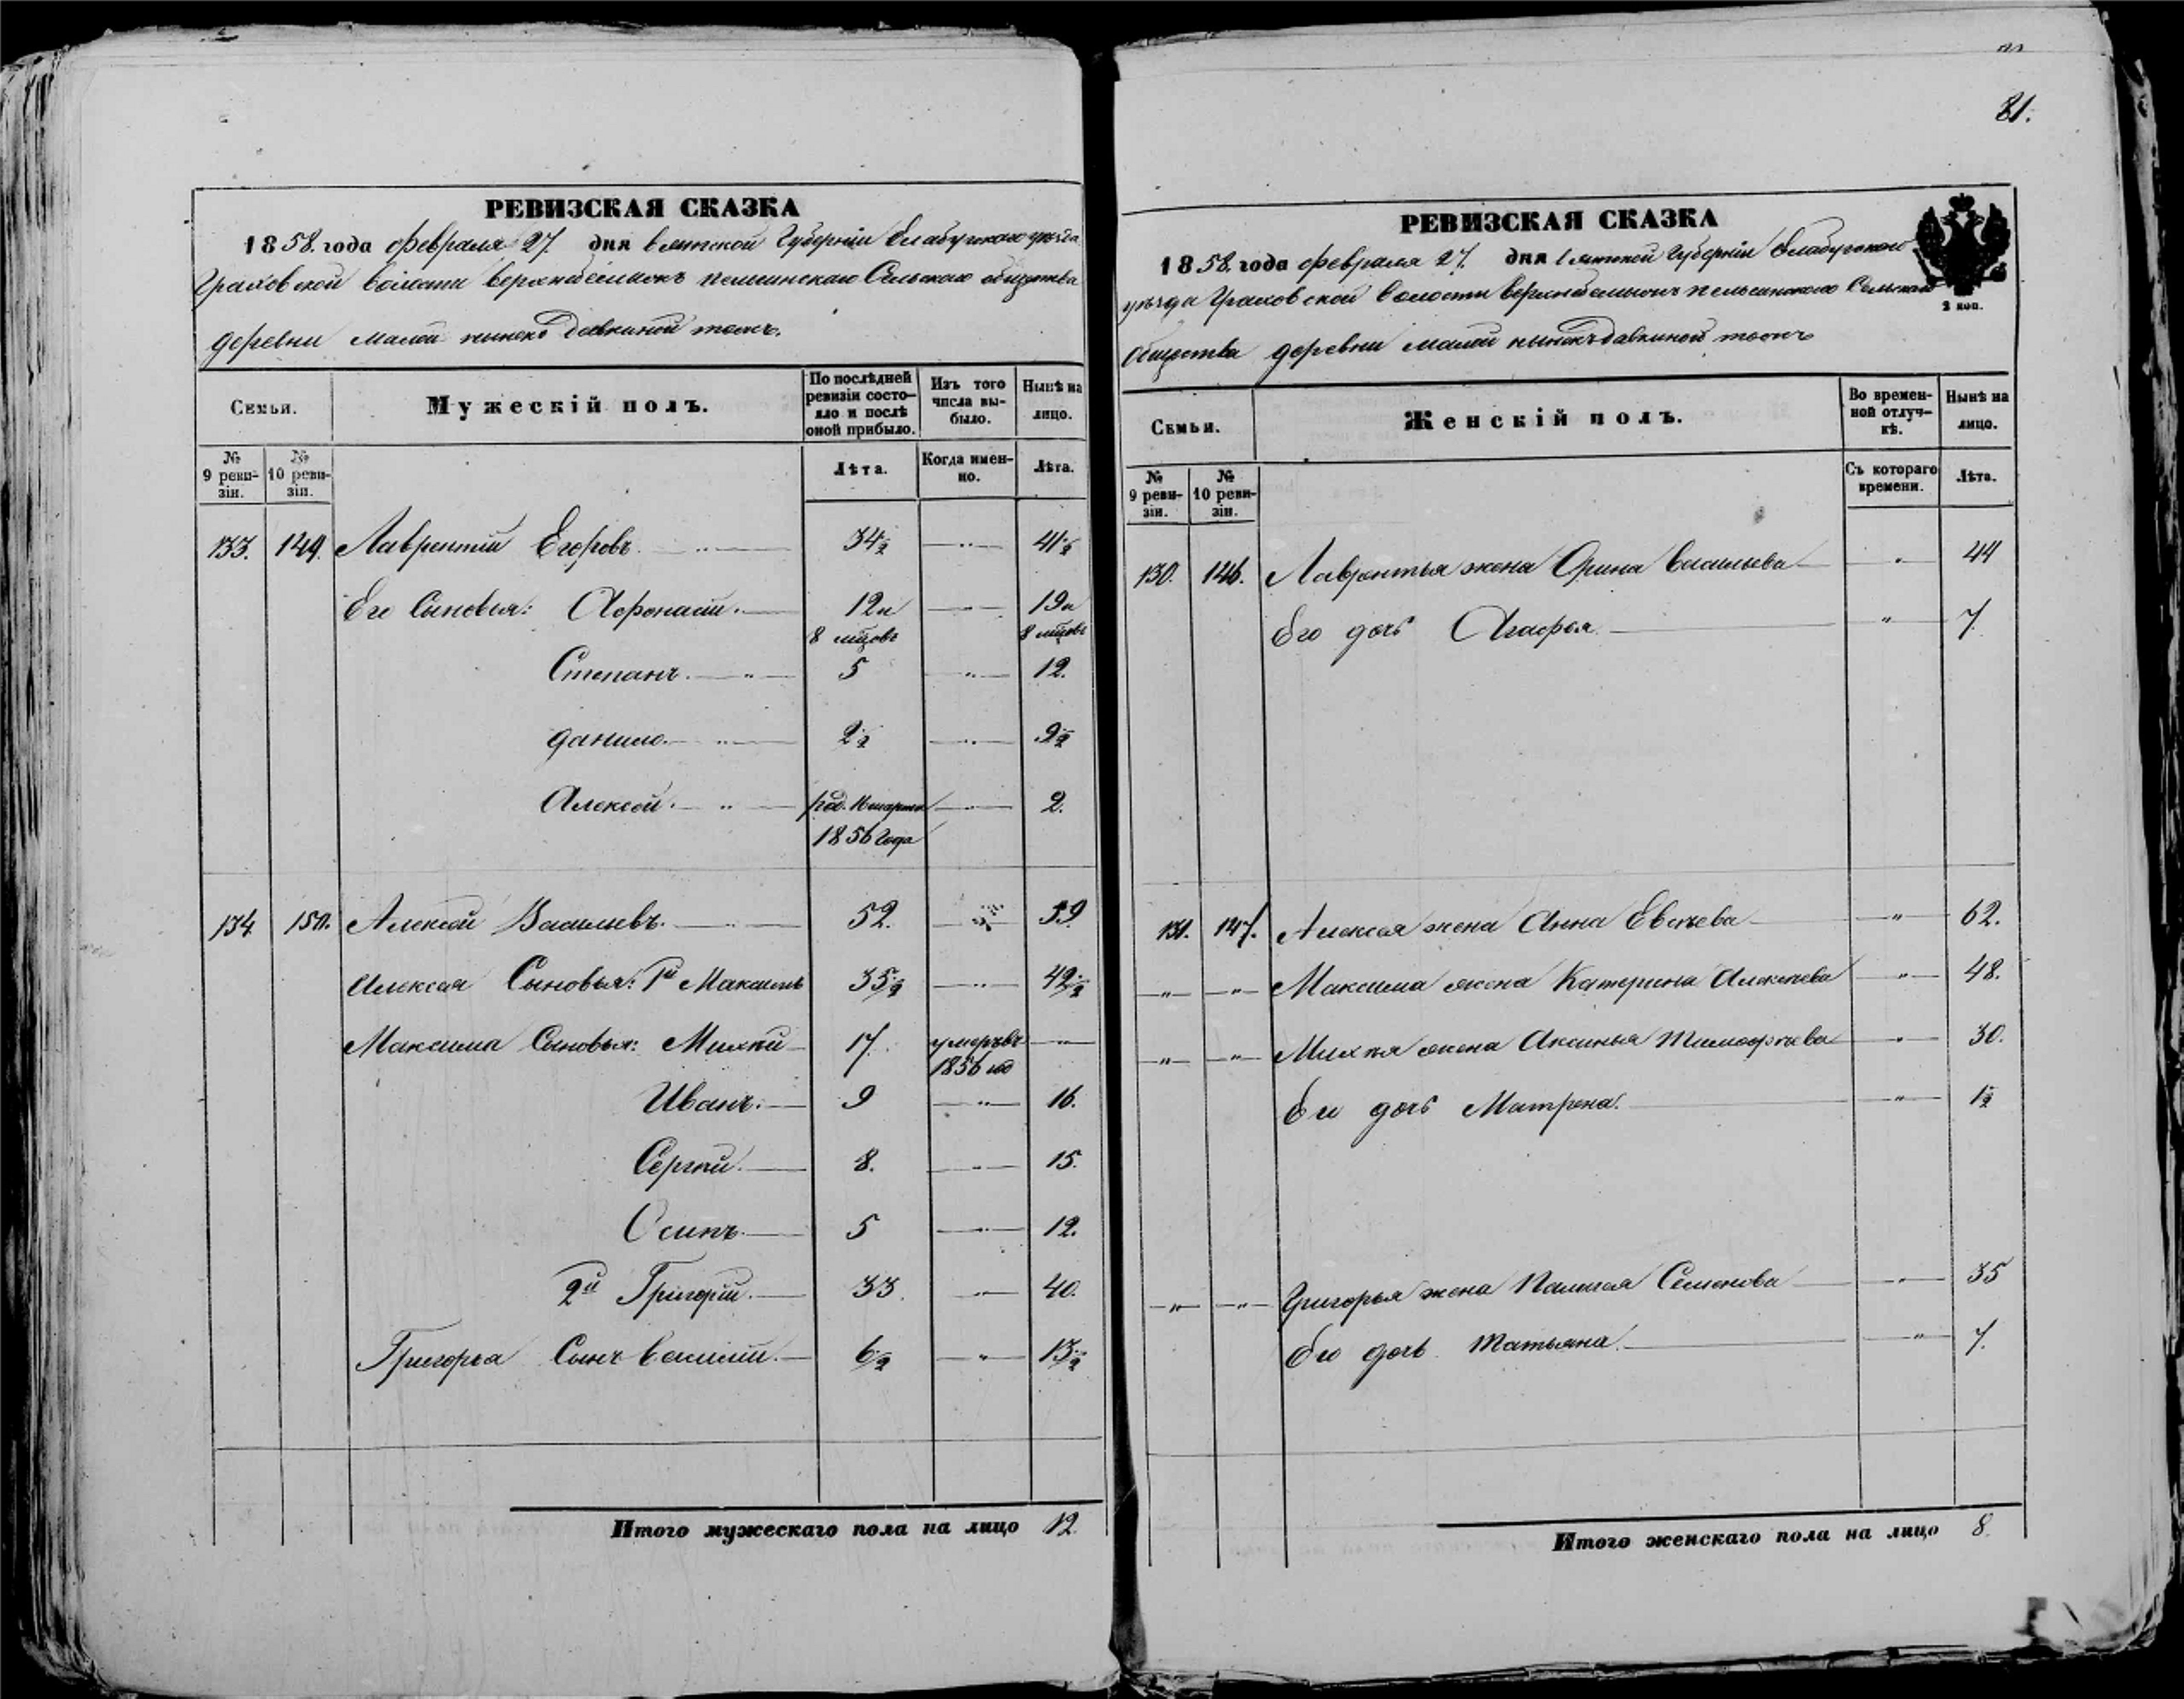 81.
РЕВИЗСКАЯ СКАЗКА
1858. года февраля 27. дня Вятской Губерніи Елабугскаго уезда
Граховской волости Сельскаго общества
деревни Малой тожъ.
Семьи.
Мужескій полъ.
По послѣдней ревизіи состояло и послѣ оной прибыло.
Изъ того числа выбыло.
Нынѣ на лицо.
№ 9 ревизіи.
№ 10 ревизіи.
Лѣта.
Когда именно.
Лѣта.
133. 149. Лаврентій Егоровъ. 34½ „ 41½
Его Сыновья: Афонасій. 12 и „ 19 и
8 мѣцовъ 8 мѣцовъ
Степанъ. „ 5 „ 12.
Данило. „ 2½ „ 9½
Алексей. „ род. марта „ 2.
1856 года
134 150. Алексей Васильевъ. „ 52. „ 59.
Алексея Сыновья: 1й Максимъ 35½ „ 42½
Максима Сыновья: Михѣй 17. умеръ въ „
1856 год
Иванъ. 9 „ 16.
Сергѣй. 8. „ 15.
Осипъ. 5 „ 12.
2й Григорій. 33. „ 40.
Григорья Сынъ Василій. 6½ „ 13½
Итого мужескаго пола на лицо 12
РЕВИЗСКАЯ СКАЗКА
1858. года февраля 27. дня Вятской Губерніи Елабугскаго
2 коп.
уезда Граховской Волости Сельскаго
общества деревни Малой тожъ
Семьи.
Женскій полъ.
Во временной отлучкѣ.
Нынѣ на лицо.
№ 9 ревизіи.
№ 10 ревизіи.
Съ котораго времени.
Лѣта.
130. 146. Лаврентья жена Орина Васильева „ 44
Его дочь Агафья „ 7.
131. 147. Алексея жена Анна „ 62.
„ „ Максима жена Катерина Алексѣева „ 48.
„ „ Михѣя жена Аксинья Тимофѣева „ 30.
Ея дочь Матрена. „ 1½
„ „ Григорья жена Палагея Семенова „ 35
Его дочь Татьяна. „ 7.
Итого женскаго пола на лицо 8.